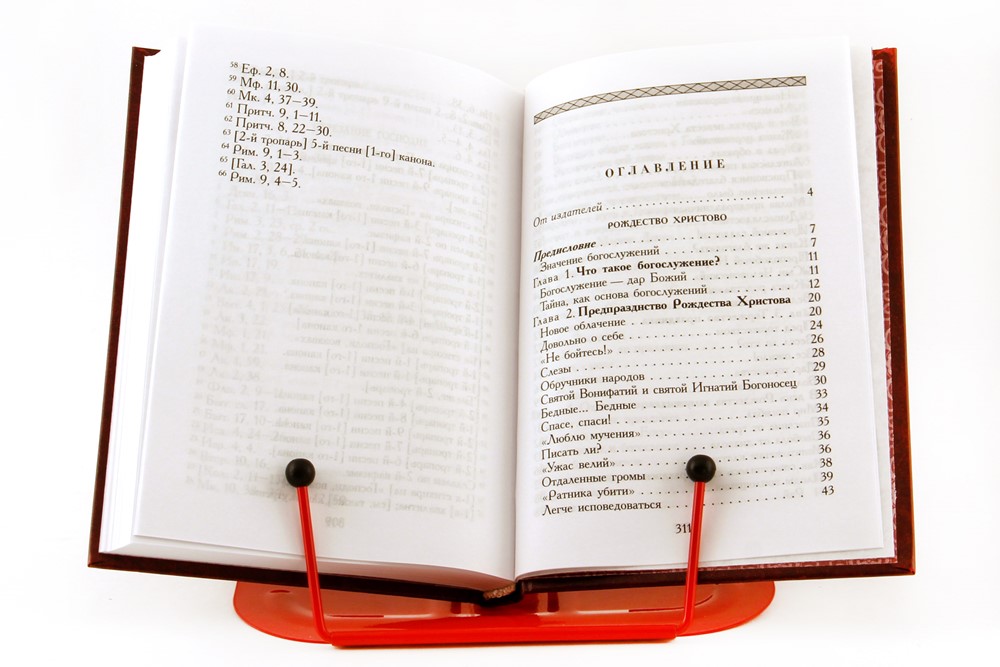 58 Еф. 2, 8.
59 Мф. 11, 30.
60 Мк. 4, 37—39.
61 Притч. 9, 1—11.
62 Притч. 8, 22—30.
63 [2-й тропарь] 5-й песни [1-го] канона.
64 Рим. 9, 1—3.
65 [Гал. 3, 24].
66 Рим. 9, 4—5.
ОГЛАВЛЕНИЕ
От издателей . . . 4
РОЖДЕСТВО ХРИСТОВО
Предисловие . . . 7
Значение богослужений . . . 7
Глава 1. Что такое богослужение? . . . 11
Богослужение — дар Божий . . . 11
Тайна, как основа богослужений . . . 12
Глава 2. Предпразднство Рождества Христова 20
Новое облачение . . . 20
Довольно о себе . . . 24
«Не бойтесь!» . . . 26
Слезы . . . 28
Обручники народов . . . 29
Святой Вонифатий и святой Игнатий Богоносец 30
Бедные... Бедные . . . 33
Спасе, спаси! . . . 34
«Люблю мучения» . . . 35
Писать ли? . . . 36
«Ужас велий» . . . 36
Отдаленные громы . . . 38
«Ратника убити» . . . 39
Легче исповедоваться . . . 43
311